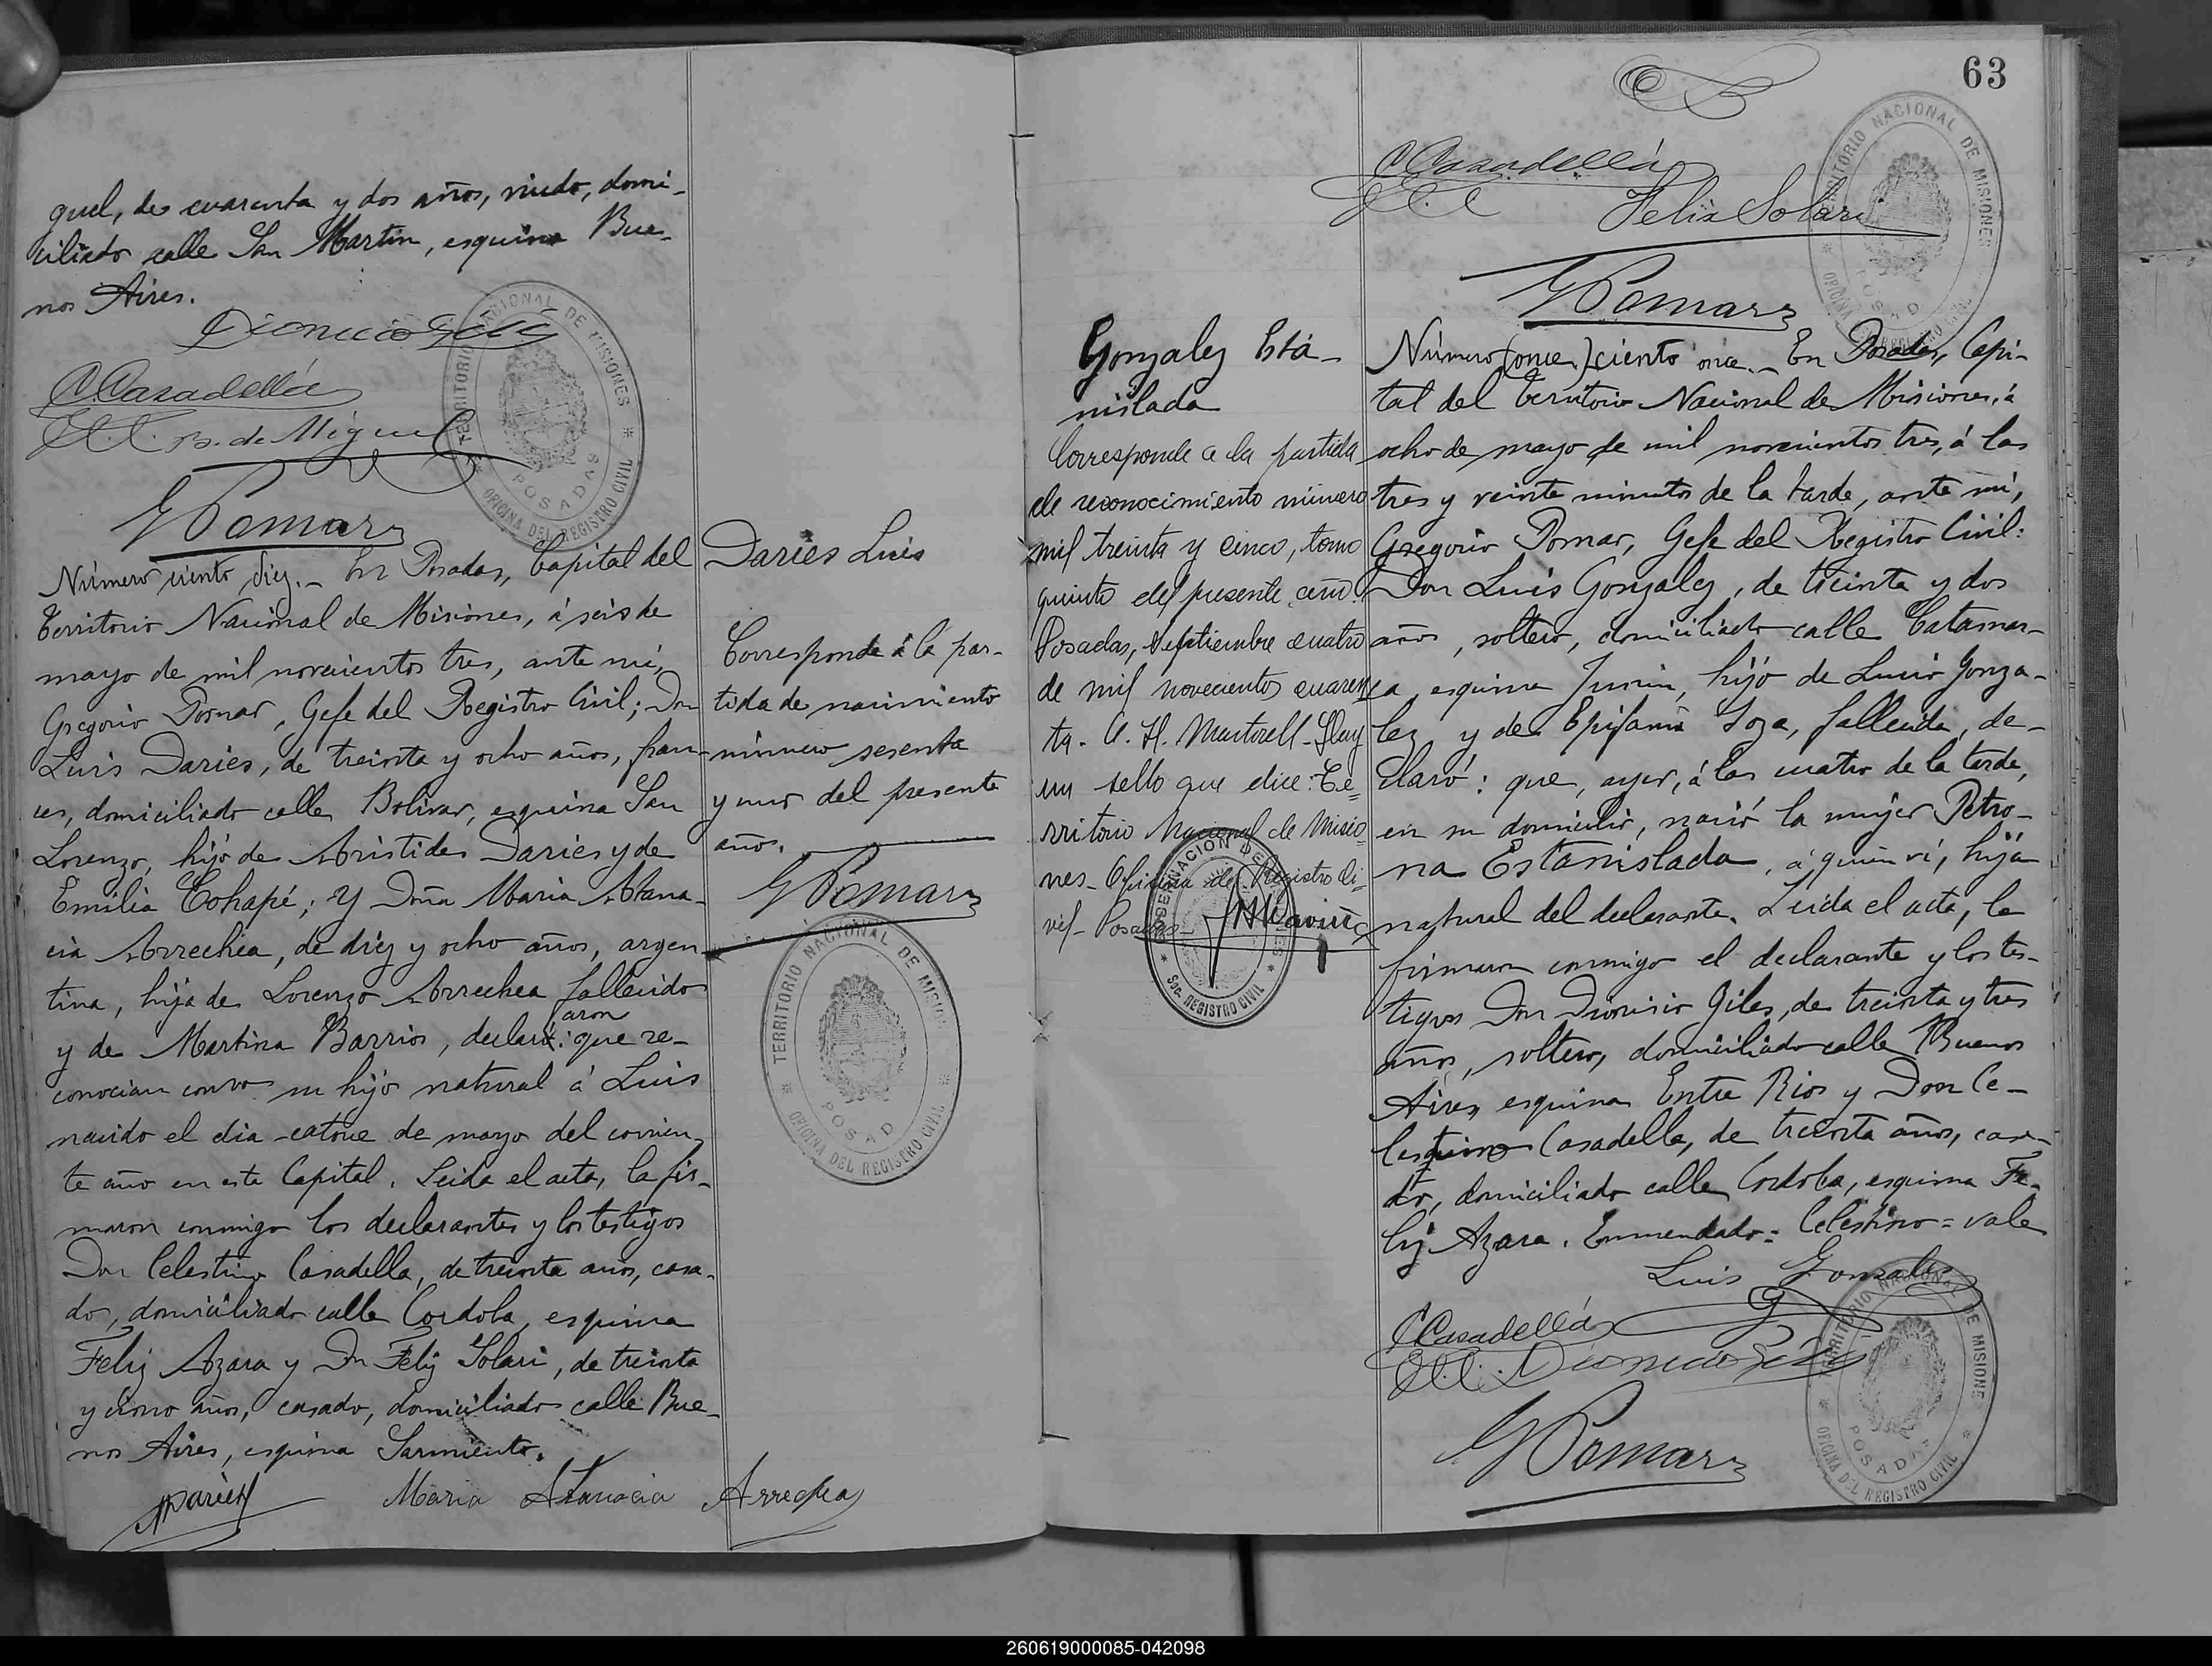 quel, de cuarenta y dos años, viudo, domi-
ciliado calle San Martin, esquina Bue-
nos Aires.
Dionicio Gili
C Casadellá
B. de Miguel
TERRITORIO NACIONAL DE MISIONES
OFICINA DEL REGISTRO CIVIL
POSADAS
G Pomar
Número ciento diez._ En Posadas, Capital del
Territorio Nacional de Misiones, á seis de
mayo de mil novecientos tres, ante mi,
Gregorio Pomar, Gefe del Registro Civil; Don
Luis Daries, de treinta y ocho años, fran-
ces, domiciliado calle Bolivar, esquina San
Lorenzo, hijo de Aristides Daries y de
Emilia Cohapé; y Doña Maria Atana-
cia Arrechea, de diez y ocho años, argen-
tina, hija de Lorenzo Arrechea fallecido
y de Martina Barrios, declararon: que re-
conocian como su hijo natural á Luis
nacido el dia catorce de mayo del corrien-
te año en esta Capital. Leida el acta, la fir-
maron conmigo los declarantes y los testigos
Don Celestino Casadella, de treinta años, casa-
do, domiciliado calle Cordoba, esquina
Feliz Azara y Dn Feliz Solari, de treinta
y cinco años, casado, domiciliado calle Bue-
nos Aires, esquina Sarmiento.
Daries Maria Atanacia Arrechea
Daries Luis
Corresponde á la par-
tida de nacimiento
número sesenta
y uno del presente
año.
G Pomar
TERRITORIO NACIONAL DE MISIONES
OFICINA DEL REGISTRO CIVIL
POSADAS
63
C Casadellá
Felix Solari
TERRITORIO NACIONAL DE MISIONES
OFICINA DEL REGISTRO CIVIL
POSADAS
G Pomar
Gonzalez Esta-
nislada
Corresponde a la partida
de reconocimiento número
mil treinta y cinco, tomo
quinto del presente año.
Posadas, Septiembre cuatro
de mil novecientos cuaren
ta. A. H. Martorell-Hay
un sello que dice: Te=
rritorio Nacional de Misio
nes- Oficina del Registro Ci-
vil- Posadas-
GOBERNACION DE MISIONES
Soc. REGISTRO CIVIL
Número (once) ciento once._ En Posadas, Capi-
tal del Territorio Nacional de Misiones, á
ocho de mayo de mil novecientos tres, á las
tres y veinte minutos de la tarde, ante mi,
Gregorio Pomar, Gefe del Registro Civil:
Don Luis Gonzalez, de treinta y dos
años, soltero, domiciliado calle Catamar-
ca, esquina Junin, hijo de Lucio Gonza-
lez y de Epifania Soza, fallecida, de-
claró: que, ayer, á las cuatro de la tarde,
en su domicilio, nació la mujer Petro-
na Estanislada, á quien vi, hija
natural del declarante. Leida el acta, la
firmaron conmigo el declarante y los tes-
tigos Don Dionisio Giles, de treinta y tres
años, soltero, domiciliado calle Buenos
Aires, esquina Entre Rios y Don Ce-
lestino Casadella, de treinta años, casa-
do, domiciliado calle Cordoba, esquina Fe-
liz Azara. Enmendado: Celestino = vale
Luis Gonzalez
C Casadellá
Dionicio Gili
G Pomar
TERRITORIO NACIONAL DE MISIONES
OFICINA DEL REGISTRO CIVIL
POSADAS
260619000085-042098